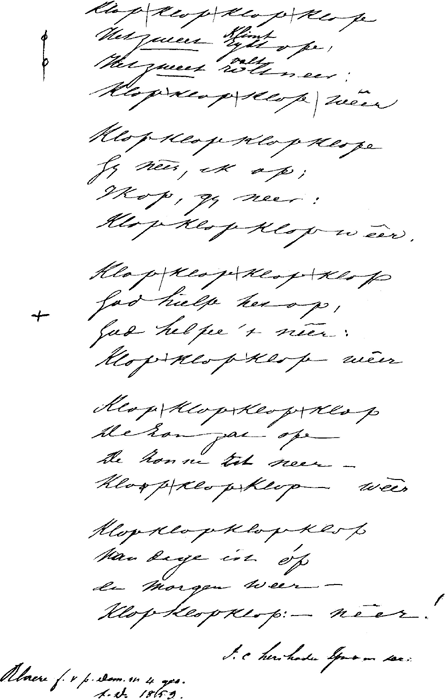 Klop Klop Klop Klope
Het zweet klimt ope,
Het zweet valt neer:
Klop Klop Klop wêer
Klop Klop Klop Klope
Gy nêer, ik op;
Ikop, gy neer:
Klop Klop Klop wêer.
Klop Klop Klop Klop
God hielp het op,
God helpe 't nêer:
Klop Klop Klop wêer
Klop Klop Klop Klop
De zon ope
De zonne neer –
Klop Klop Klop – wêer
Klop Klop Klop Klop
Van dage is 't óp
En morgen weer –
Klop Klop Klop: – nêer!
f. v p. dom. 4
1859.